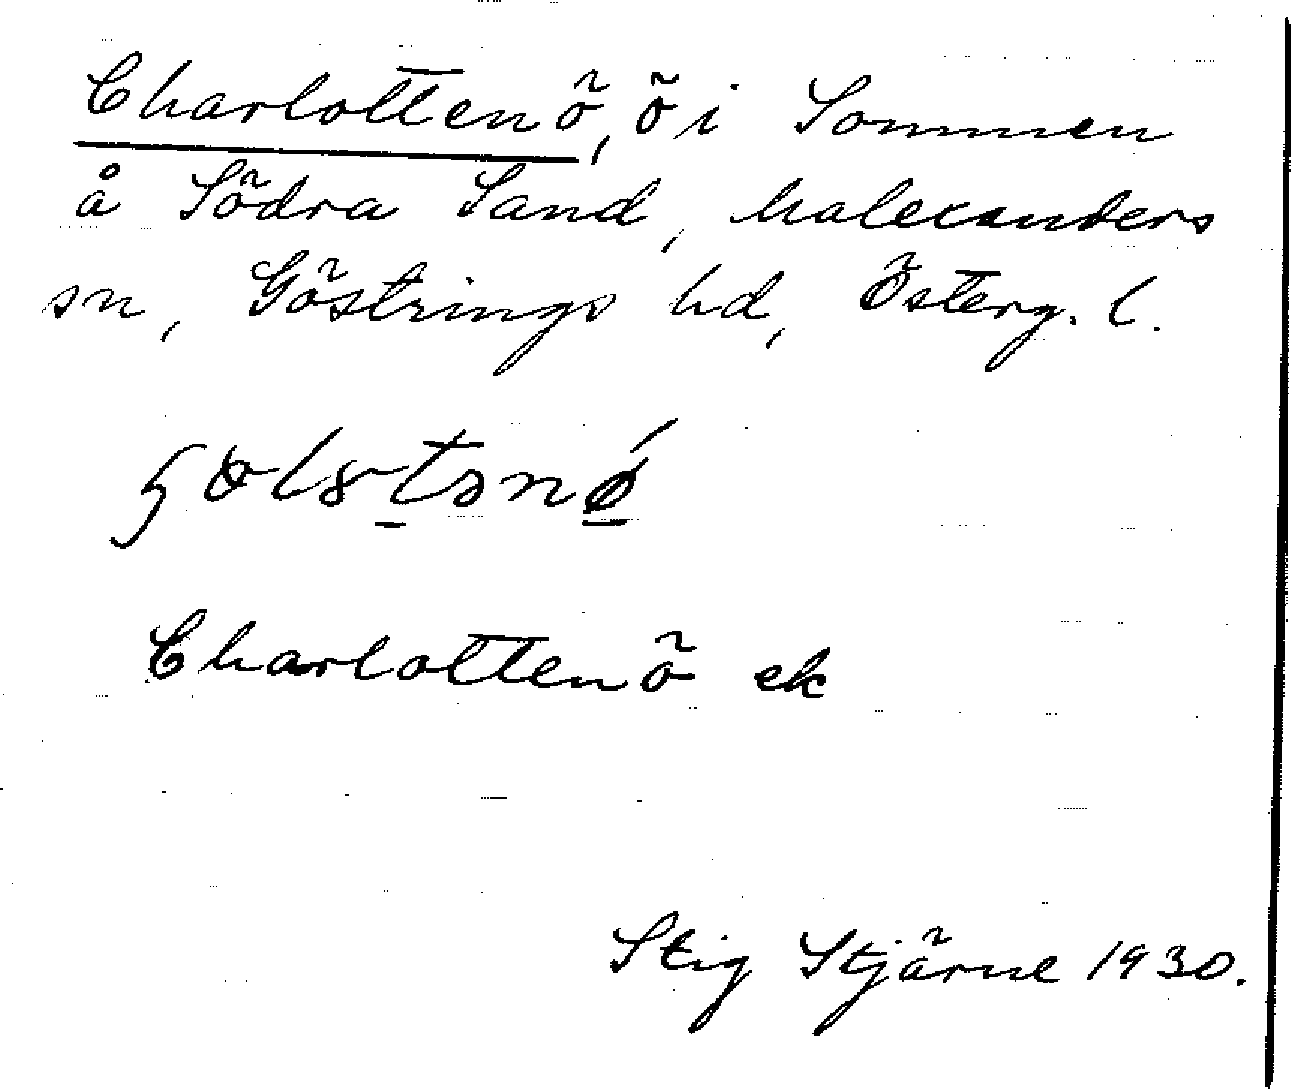 Charlottenö, ö i Sommen
å Södra Sand, Malexanders
sn, Göstrings hd, Österg. l.
Charlottenö ek
Stig Stjärne 1930.